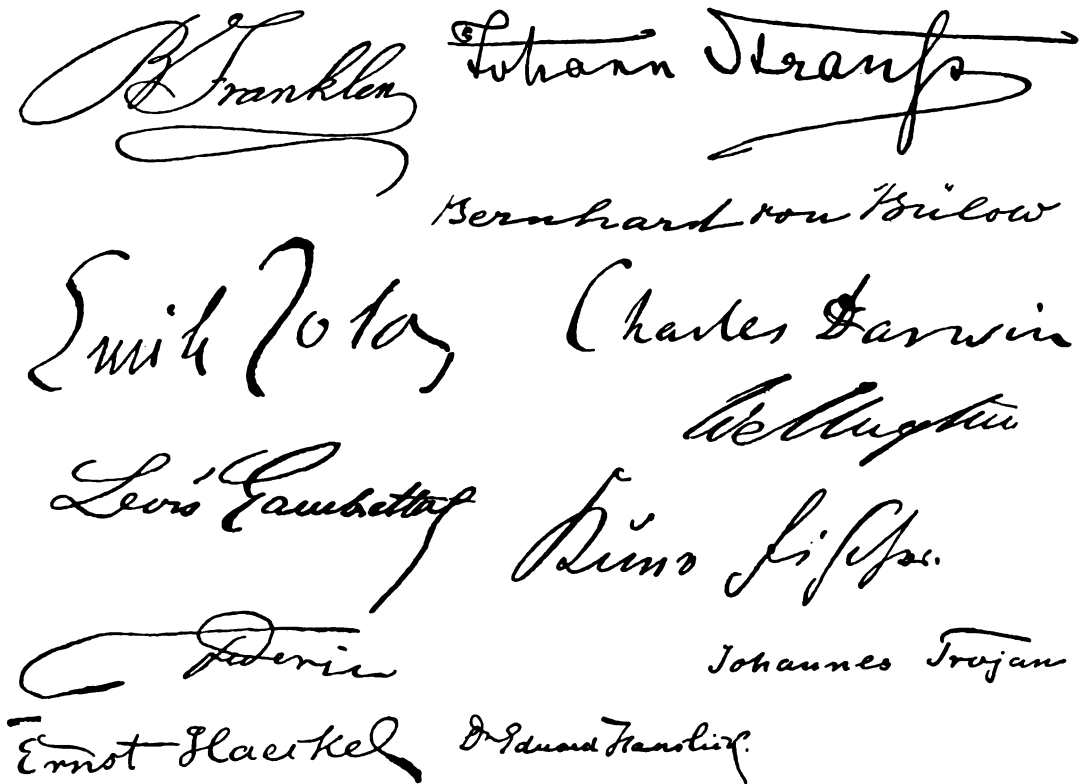 B Franklin
Johann Strauß
Bernhard von Bülow
Emile Zola
Charles Darwin
Wellington
Leon Gambetta
Kuno Fischer.
Federic
Johannes Trojan
Ernst Haeckel
Dr Eduard Hanslick.